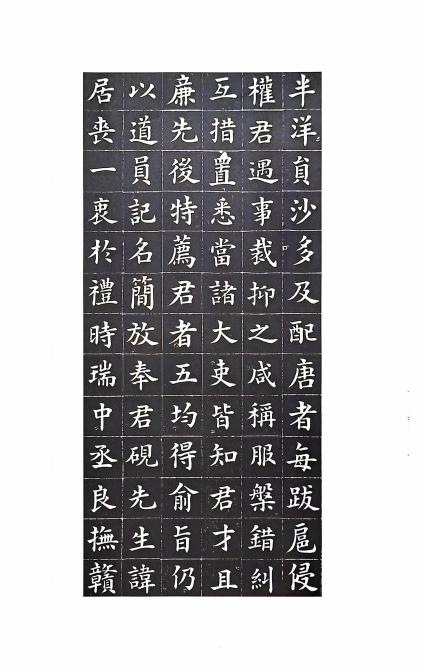 半洋員沙多及配唐者每跋扈侵
權君遇事裁抑之咸稱服槃錯糾
互措置悉當諸大吏皆知君才且
廉先後特薦君者五均得俞旨仍
以道員記名簡放奉君硯先生諱
居喪一衷於禮時瑞中丞良撫贛